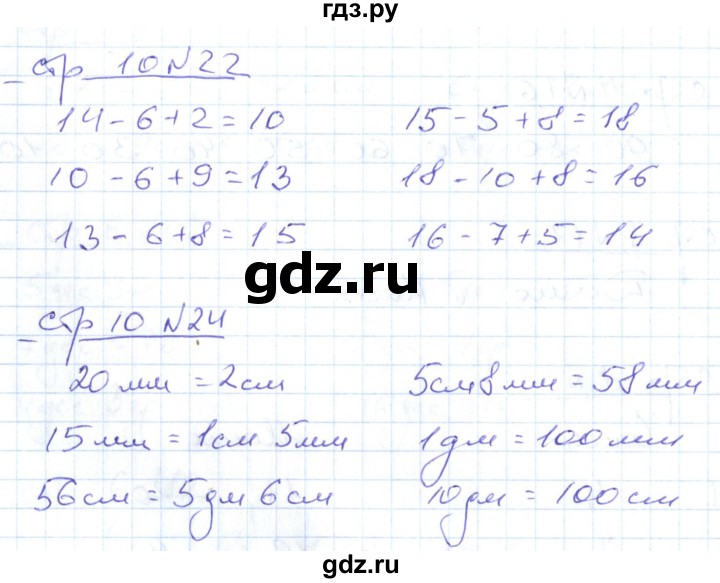 гдз.ру
стр 10 №22
14 - 6 + 2 = 10 15 - 5 + 8 = 18
10 - 6 + 9 = 13 18 - 10 + 8 = 16
13 - 6 + 8 = 15 16 - 7 + 5 = 14
gdz.ru
стр 10 №24
20 мм = 2 см 5 см 8 мм = 58 мм
15 мм = 1 см 5 мм 1 дм = 100 мм
56 см = 5 дм 6 см 10 дм = 100 см
gdz.ru